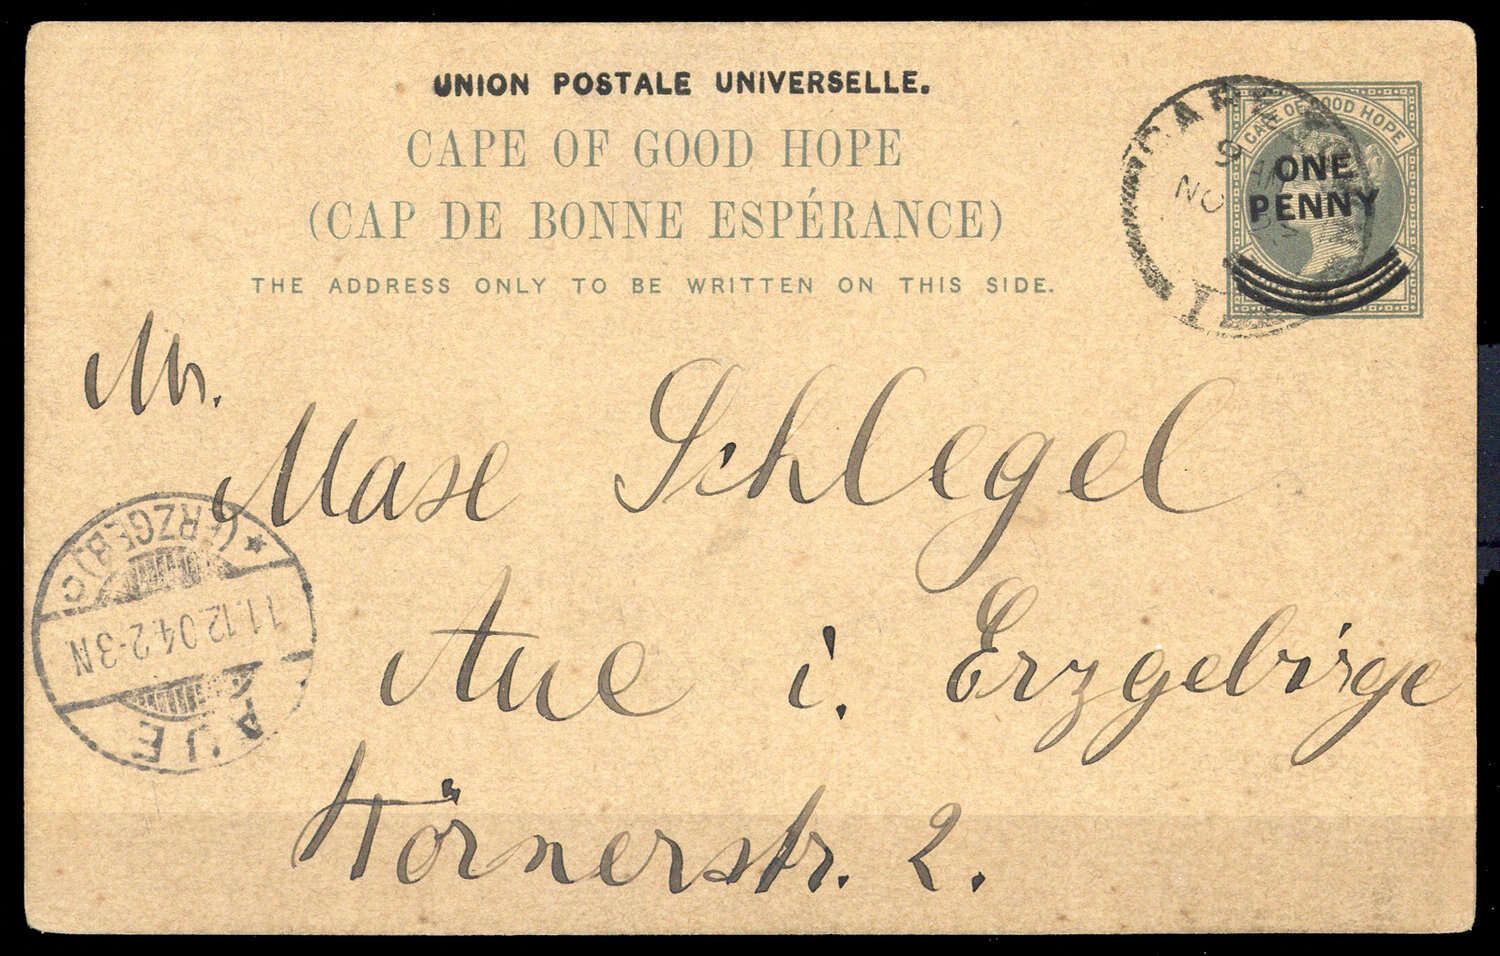 UNION POSTALE UNIVERSELLE.
CAPE OF GOOD HOPE
(CAP DE BONNE ESPÉRANCE)
THE ADDRESS ONLY TO BE WRITTEN ON THIS SIDE.
CAPE OF GOOD HOPE
ONE
PENNY
CAPE
9
NO
1
Mr.
Max Schlegel
Aue i. Erzgebirge
Körnerstr. 2.
AUE
11.12.04.2-3N
* (ERZGEB.) c